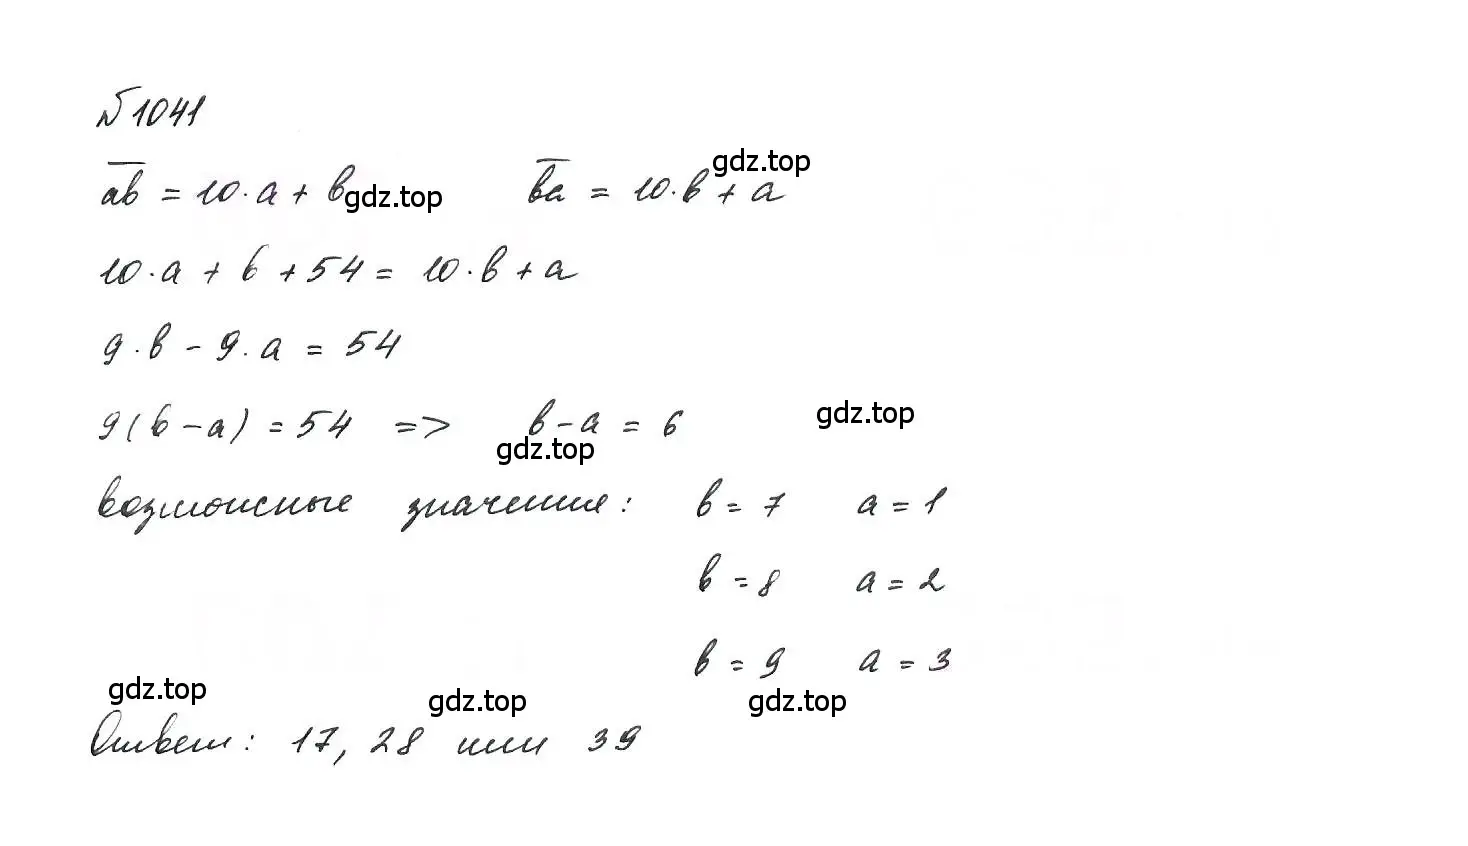 №1041
gdz.top
ab = 10·a + b gdz.top ba = 10·b + a
10·a + b + 54 = 10·b + a
9·b - 9·a = 54
9(b-a) = 54 => b-a = 6 gdz.top
gdz.top
возможные значения: b = 7 a = 1
b = 8 a = 2
b = 9 a = 3
gdz.top gdz.top gdz.top
Ответ: 17, 28 или 39